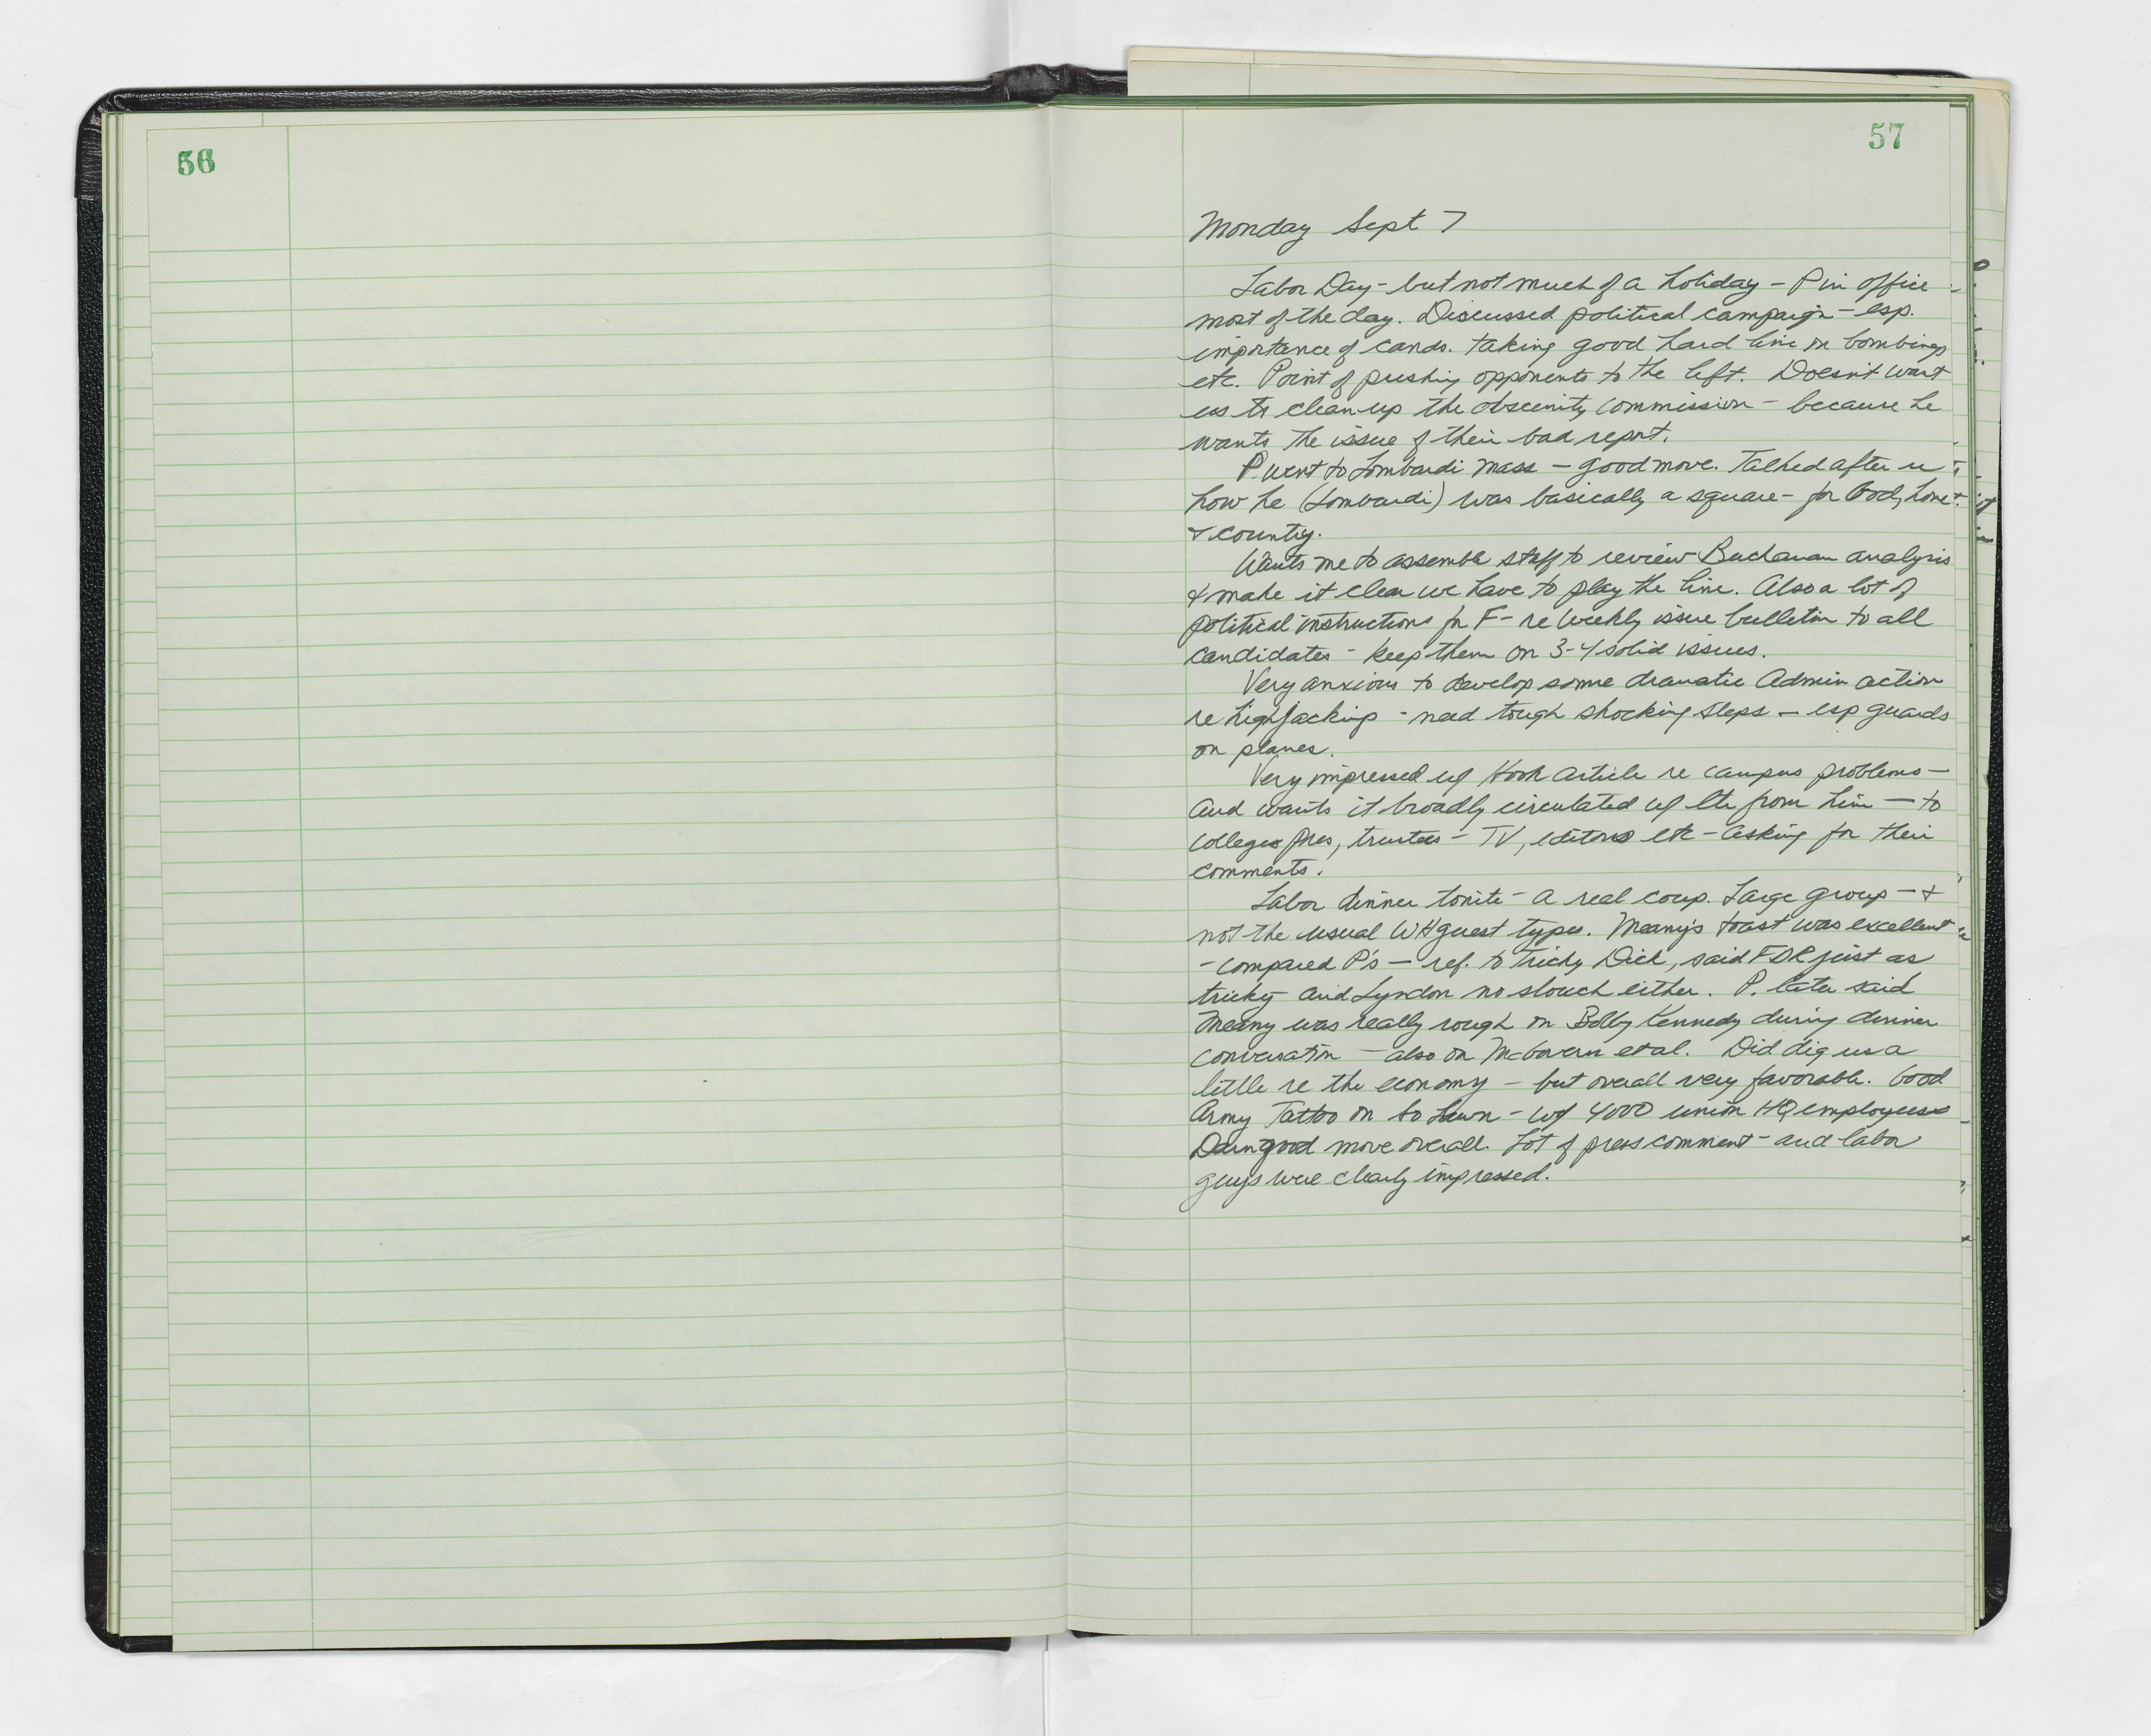 56
57
Monday Sept 7
Labor Day - but not much of a holiday - P in office
most of the day. Discussed political campaign - esp.
importance of cands. taking good hard line on bombings
etc. Point of pushing opponents to the left. Doesn't want
us to clean up the obscenity commission - because he
wants the issue of their bad report.
P. went to Lombardi Mass - good move. Talked after re
how he (Lombardi) was basically a square - for God, home
& country.
Wants me to assemble staff to review Buchanan analysis
& make it clear we have to play the line. Also a lot of
political instructions for F - re weekly issue bulletin to all
candidates - keep them on 3-4 solid issues.
Very anxious to develop some dramatic Admin action
re highjacking - need tough shocking steps - esp guards
on planes.
Very impressed w/ Hook article re campus problems -
and wants it broadly circulated w/ ltr from him - to
colleges pres, trustees - TV, editors etc - asking for their
comments.
Labor dinner tonite - a real coup. Large group - &
not the usual WH guest types. Meany's toast was excellent
- compared P's - ref. to Tricky Dick, said FDR just as
tricky and Lyndon no slouch either. P. later said
Meany was really rough on Bobby Kennedy during dinner
conversation - also on McGovern et al. Did dig us a
little re the economy - but overall very favorable. Good
Army Tattoo on So Lawn - w/ 4000 union HQ employees
Darn good move overall. Lot of press comment - and labor
guys were clearly impressed.